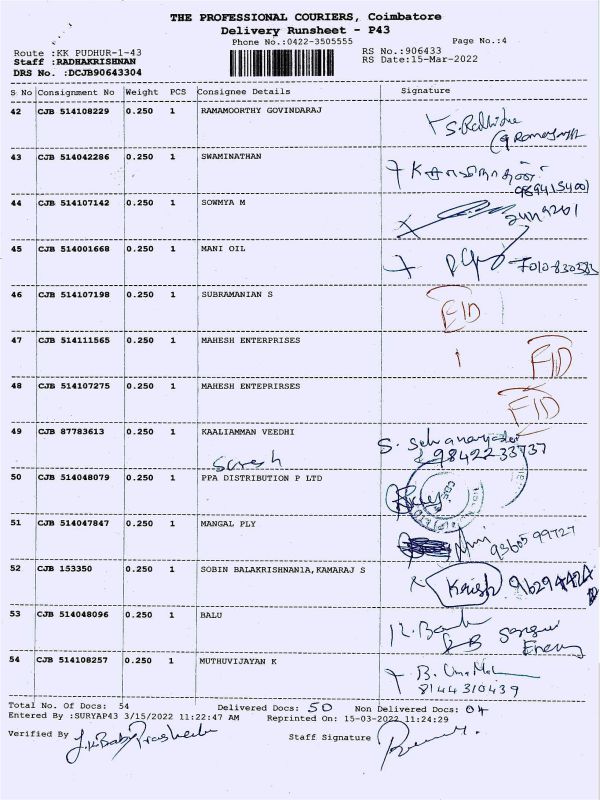 THE PROFESSIONAL COURIERS, Coimbatore
Delivery Runsheet - P43
Phone No.:0422-3505555 Page No.:4
Route :KK PUDHUR-1-43 RS No.:906433
Staff :RADHAKRISHNAN RS Date:15-Mar-2022
DRS No. :DCJB90643304
S No Consignment No Weight PCS Consignee Details Signature
42 CJB 514108229 0.250 1 RAMAMOORTHY GOVINDARAJ
43 CJB 514042286 0.250 1 SWAMINATHAN
44 CJB 514107142 0.250 1 SOWMYA M
45 CJB 514001668 0.250 1 MANI OIL 7010-830383
46 CJB 514107198 0.250 1 SUBRAMANIAN S
47 CJB 514111565 1 MAHESH ENTERPRISES
48 CJB 514107275 0.250 1 MAHESH ENTEPRIRSES
49 CJB 87783613 0.250 1 KAALIAMMAN VEEDHI
9842233737
Suresh
50 CJB 514048079 0.250 1 PPA DISTRIBUTION P LTD
51 CJB 514047847 0.250 1 MANGAL PLY 93605 99727
52 CJB 153350 0.250 1 SOBIN BALAKRISHNAN1A,KAMARAJ S Krish
53 CJB 514048096 0.250 1 BALU
54 CJB 514108257 0.250 1 MUTHUVIJAYAN K
8144310439
Total No. Of Docs: 54 Delivered Docs: 50 Non Delivered Docs: 04
Entered By :SURYAP43 3/15/2022 11:22:47 AM Reprinted On: 15-03-2022 11:24:29
Verified By Staff Signature